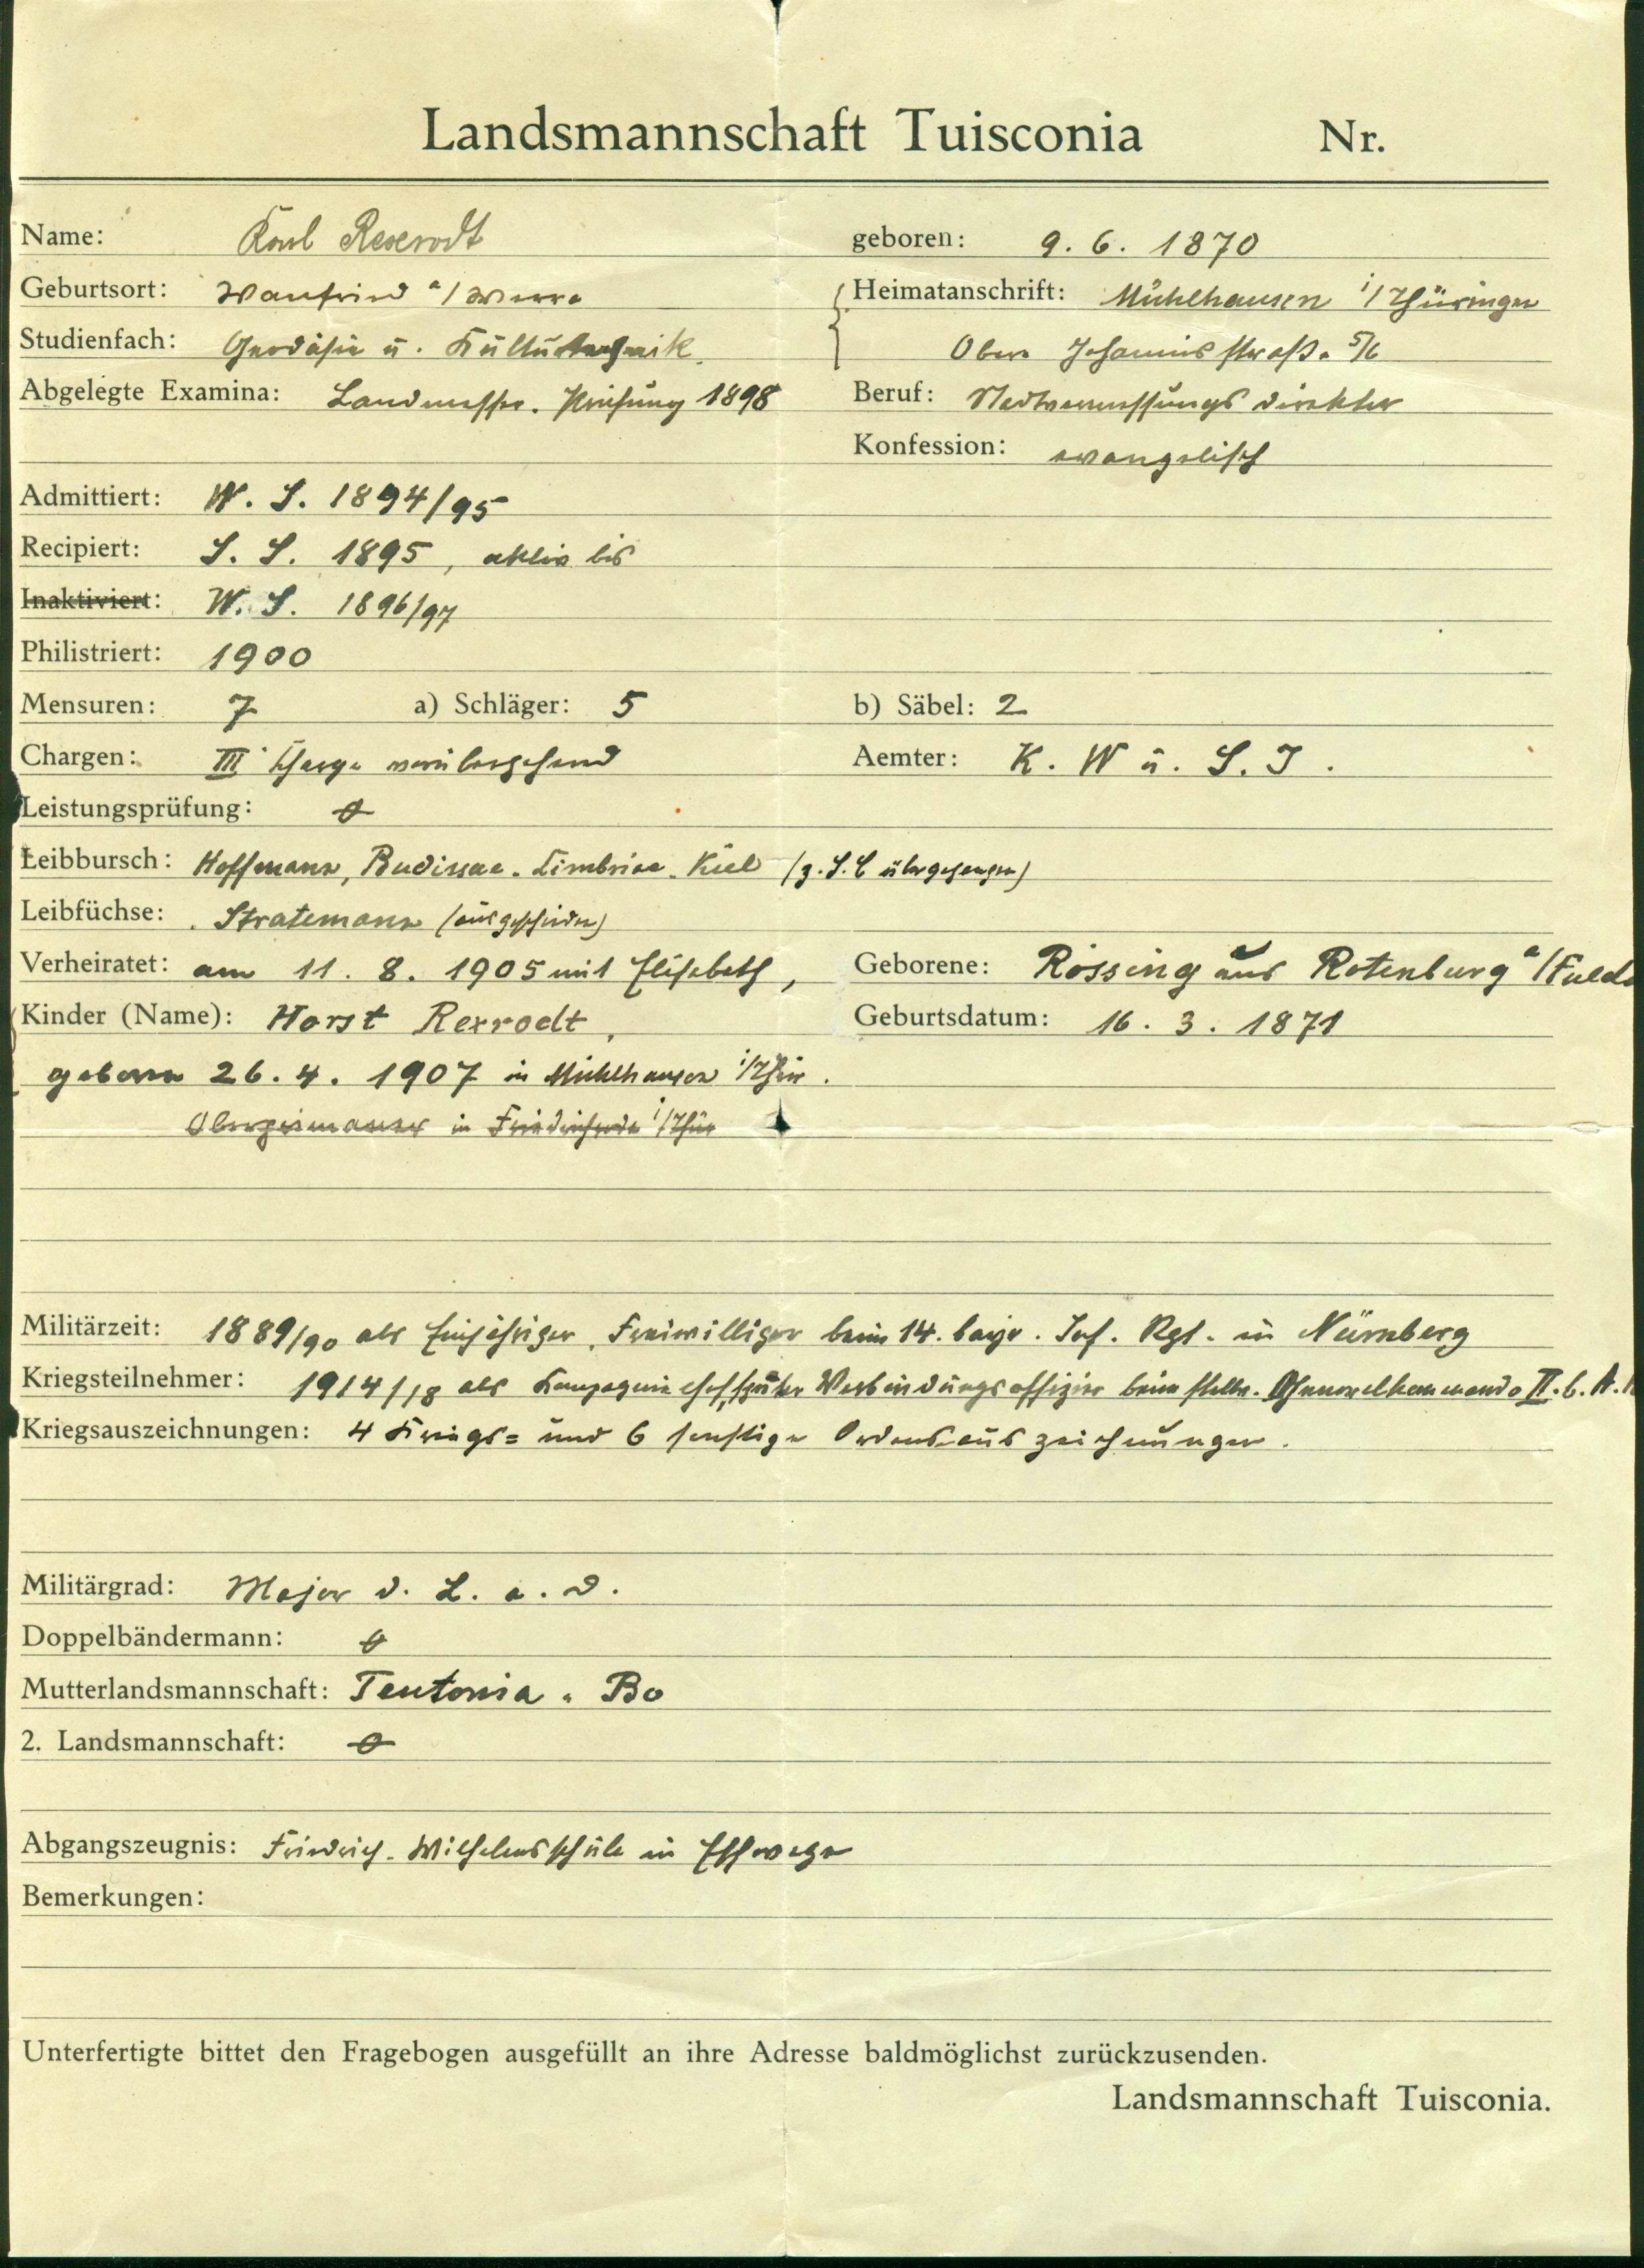 Landsmannschaft Tuisconia Nr.
Name: Karl Rexrodt geboren: 9. 6. 1870
Geburtsort: Wanfried a/Werra Heimatanschrift: Mühlhausen i/Thüringen
Studienfach: Geodäsie u. Kulturtechnik. Obere Johannisstraße 5/6
Abgelegte Examina: Landmesser-Prüfung 1898 Beruf: Stadtvermessungsdirektor
Konfession: evangelisch
Admittiert: W. S. 1894/95
Recipiert: S. S. 1895, aktiv bis
Inaktiviert: W. S. 1896/97
Philistriert: 1900
Mensuren: 7 a) Schläger: 5 b) Säbel: 2
Chargen: III Charge vorübergehend Aemter: K. W u. S. I.
Leistungsprüfung:
Leibbursch: Hoffmann, Budissae-Cimbriae-Kiel (z. S.C übergegangen)
Leibfüchse: Stratemann (ausgeschieden)
Verheiratet: am 11. 8. 1905 mit Elisabeth, Geborene: Rössing aus Rotenburg a/Fulda
Kinder (Name): Horst Rexrodt, Geburtsdatum: 16. 3. 1871
geboren 26. 4. 1907 in Mühlhausen i/Thür.
in i/Thür
Militärzeit: 1889/90 als Einjähriger-Freiwilliger beim 14. bayr. Inf. Rgt. in Nürnberg
Kriegsteilnehmer: 1914/18 als Kompagniechef, später Verbindungsoffizier beim stellv. Generalkommando II. b. A.
Kriegsauszeichnungen: 4 Kriegs= und 6 sonstige Ordensauszeichnungen.
Militärgrad: Major d. L. a. D.
Doppelbändermann:
Mutterlandsmannschaft: Teutonia-Bo
2. Landsmannschaft:
Abgangszeugnis: Friedrich-Wilhelmsschule in Eschwege
Bemerkungen:
Unterfertigte bittet den Fragebogen ausgefüllt an ihre Adresse baldmöglichst zurückzusenden.
Landsmannschaft Tuisconia.